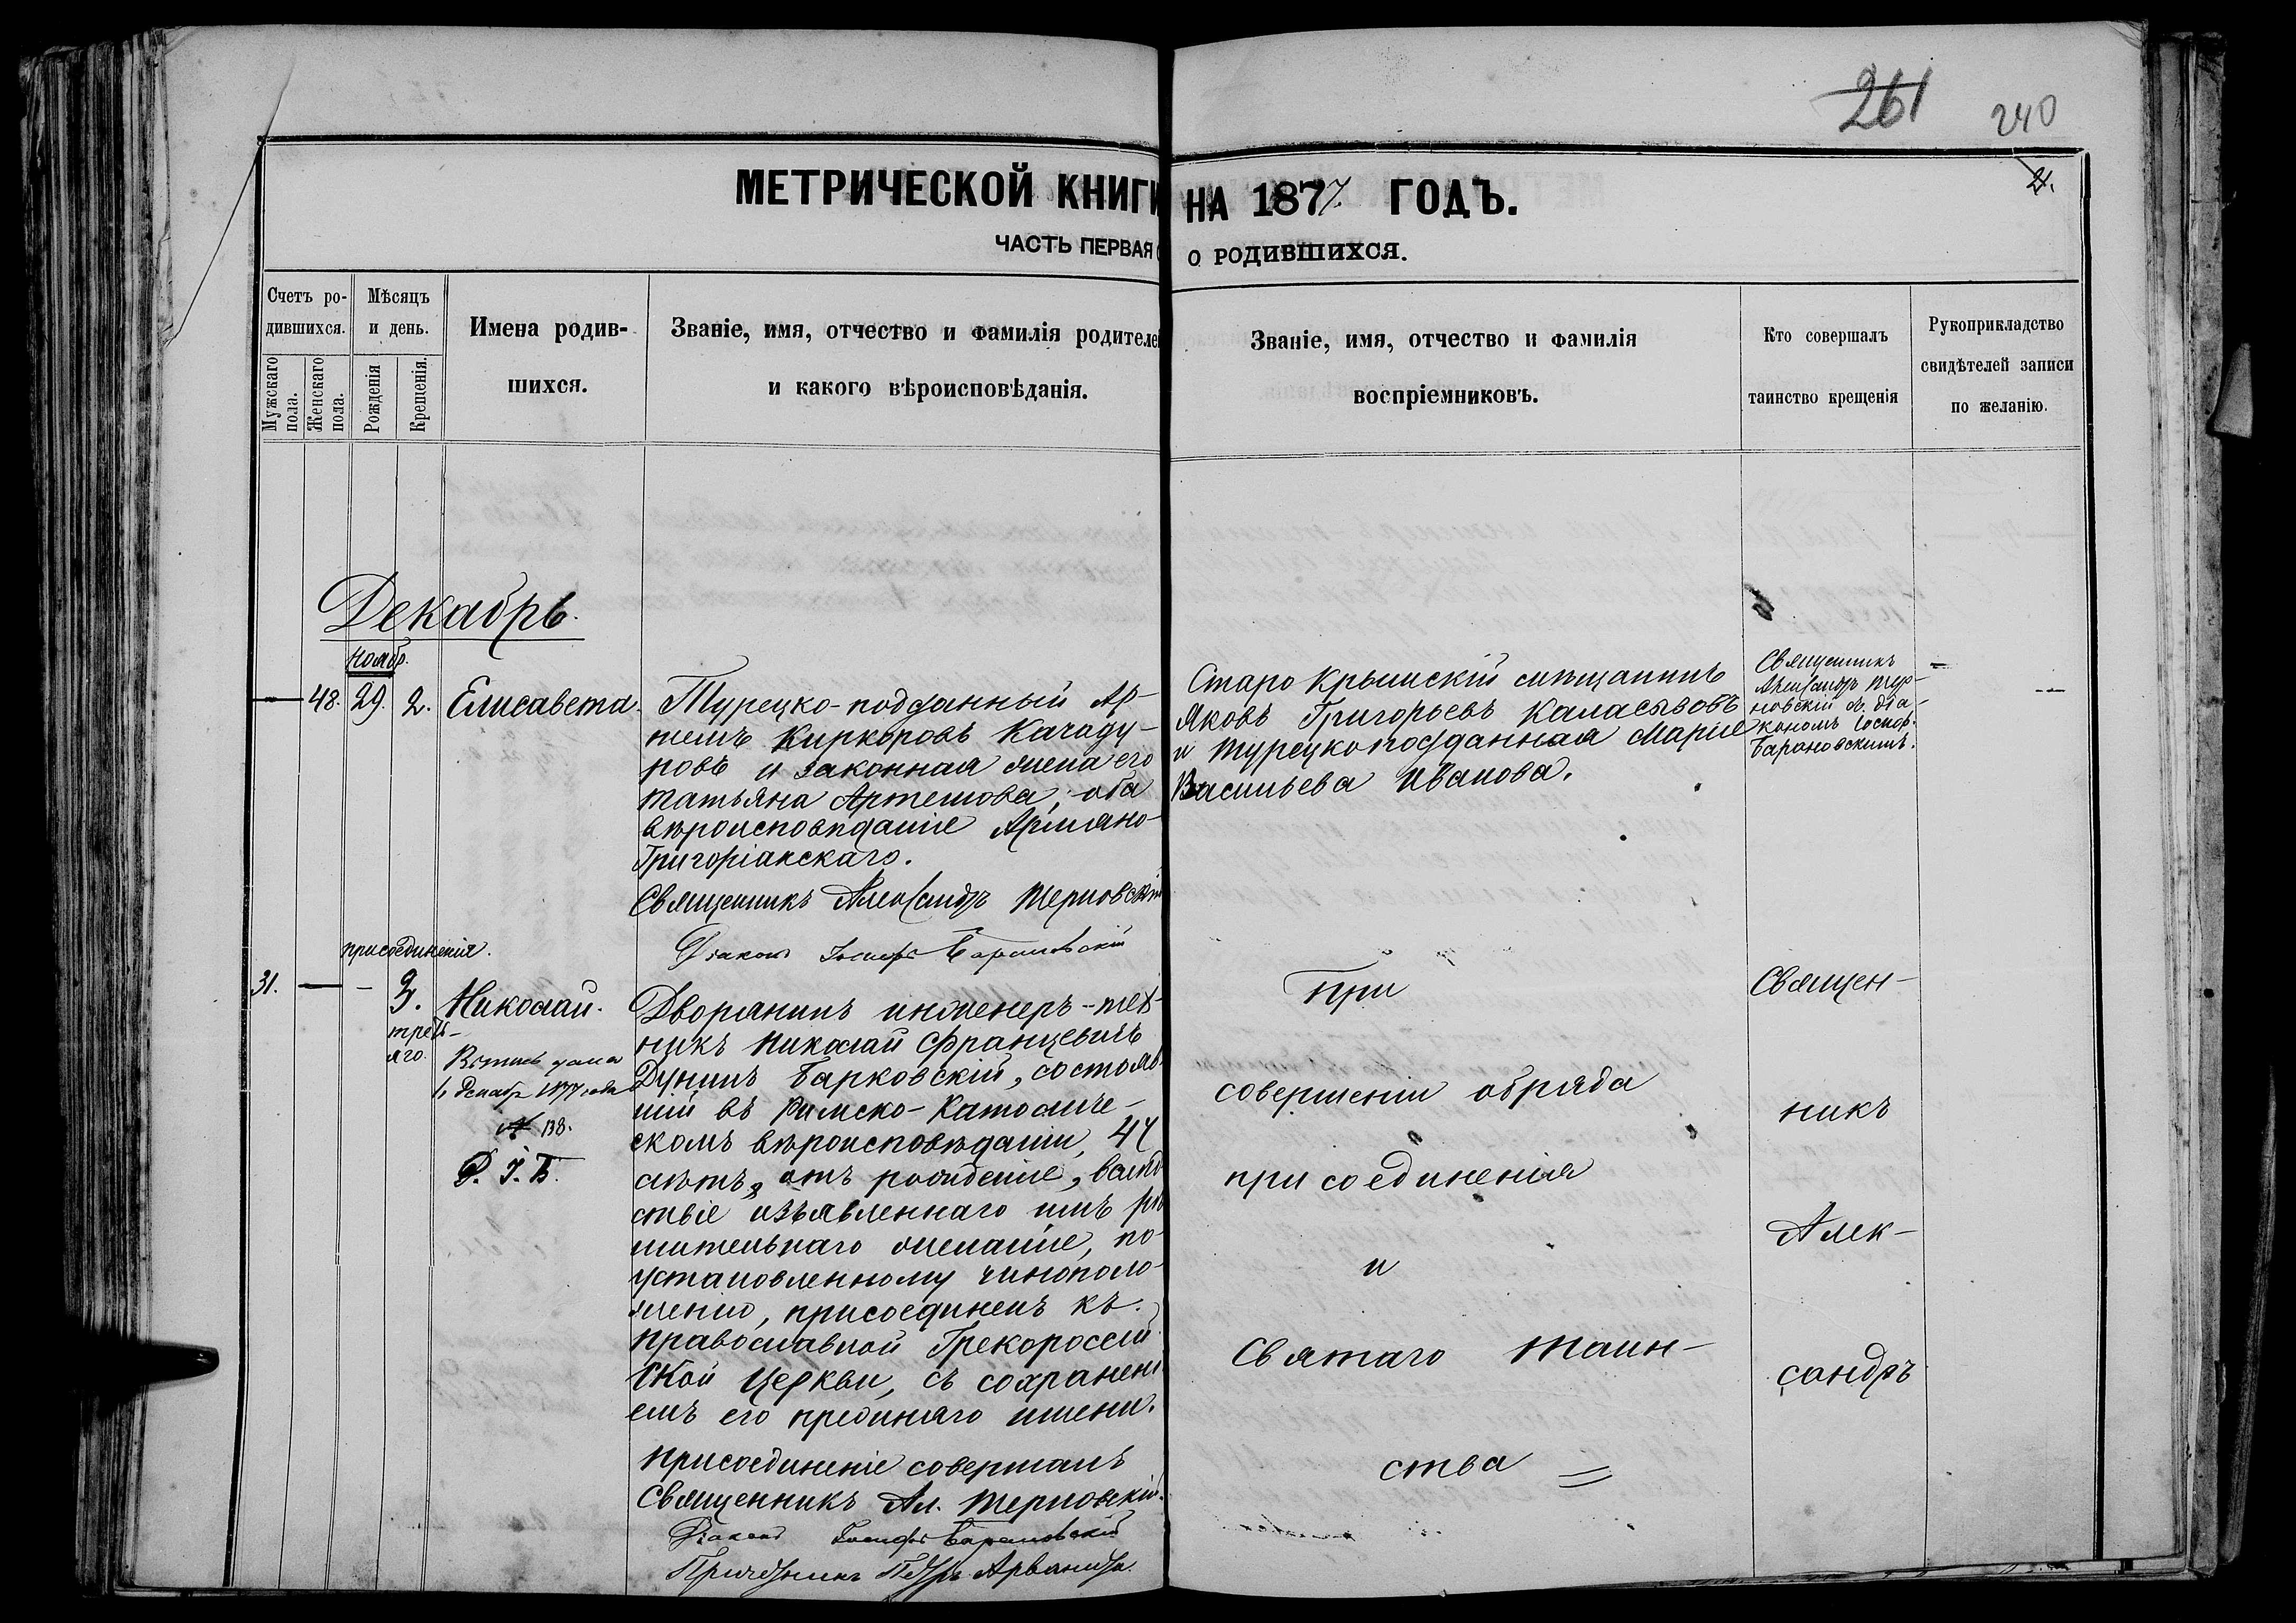 261 240
21.
МЕТРИЧЕСКОЙ КНИГИ НА 1877 ГОДЪ.
ЧАСТЬ ПЕРВАЯ О РОДИВШИХСЯ.
Счетъ ро-
дившихся.
Мужскаго пола.
Женскаго пола.
Мѣсяцъ
и день.
Рожденія
Крещенія.
Имена родив-
шихся.
Званіе, имя, отчество и фамилія родителей
и какого вѣроисповѣданія.
Званіе, имя, отчество и фамилія
воспріемниковъ.
Кто совершалъ
таинство крещенія
Рукоприкладство
свидѣтелей записи
по желанію.
Декабрь.
Ноябр.
— 48. 29. 2. Елисавета.
Турецко-подданный Ар-
темъ Киркоровъ Качаду-
ровъ и законная жена его
Татьяна Артемова; оба
вѣроисповѣданіе Армяно-
Григоріанскаго.
Священникъ Александръ Терновскій
Діаконъ Іосифъ Барановскій
Старо Крымскій мѣщанинъ
Яковъ Григорьевъ
и турецкоподданная Марія
Васильева Иванова.
Священникъ
Александръ Тер-
новскій съ діа-
кономъ Іосиф.
Барановскимъ.
присоединенія.
31. — — 3. Николай.
треть-
яго.
дана
1 Декабр 1877 года
№ 138.
Дворянинъ инженеръ-тех-
никъ Николай Францевичъ
Дунинъ Барковскій, состояв-
шій въ Римско-Католиче-
скомъ вѣроисповѣданіи, 47
лѣтъ, отъ рожденіе, вслѣд-
ствіе изъявленнаго имъ рѣ
шительнаго желаніе, по
установленному чинополо-
женію, присоединенъ къ
православной Грекороссій
ской Церкви, съ сохранені
емъ его прежняго имени.
Присоединеніе совершалъ
Священникъ Ал. Терновскій.
Діаконъ Іосифъ Барановскій
Причетникъ Петръ
При
совершеніи обряда
присоединенія
и
Святаго Таин-
ства
Священ-
никъ
Алек-
сандръ